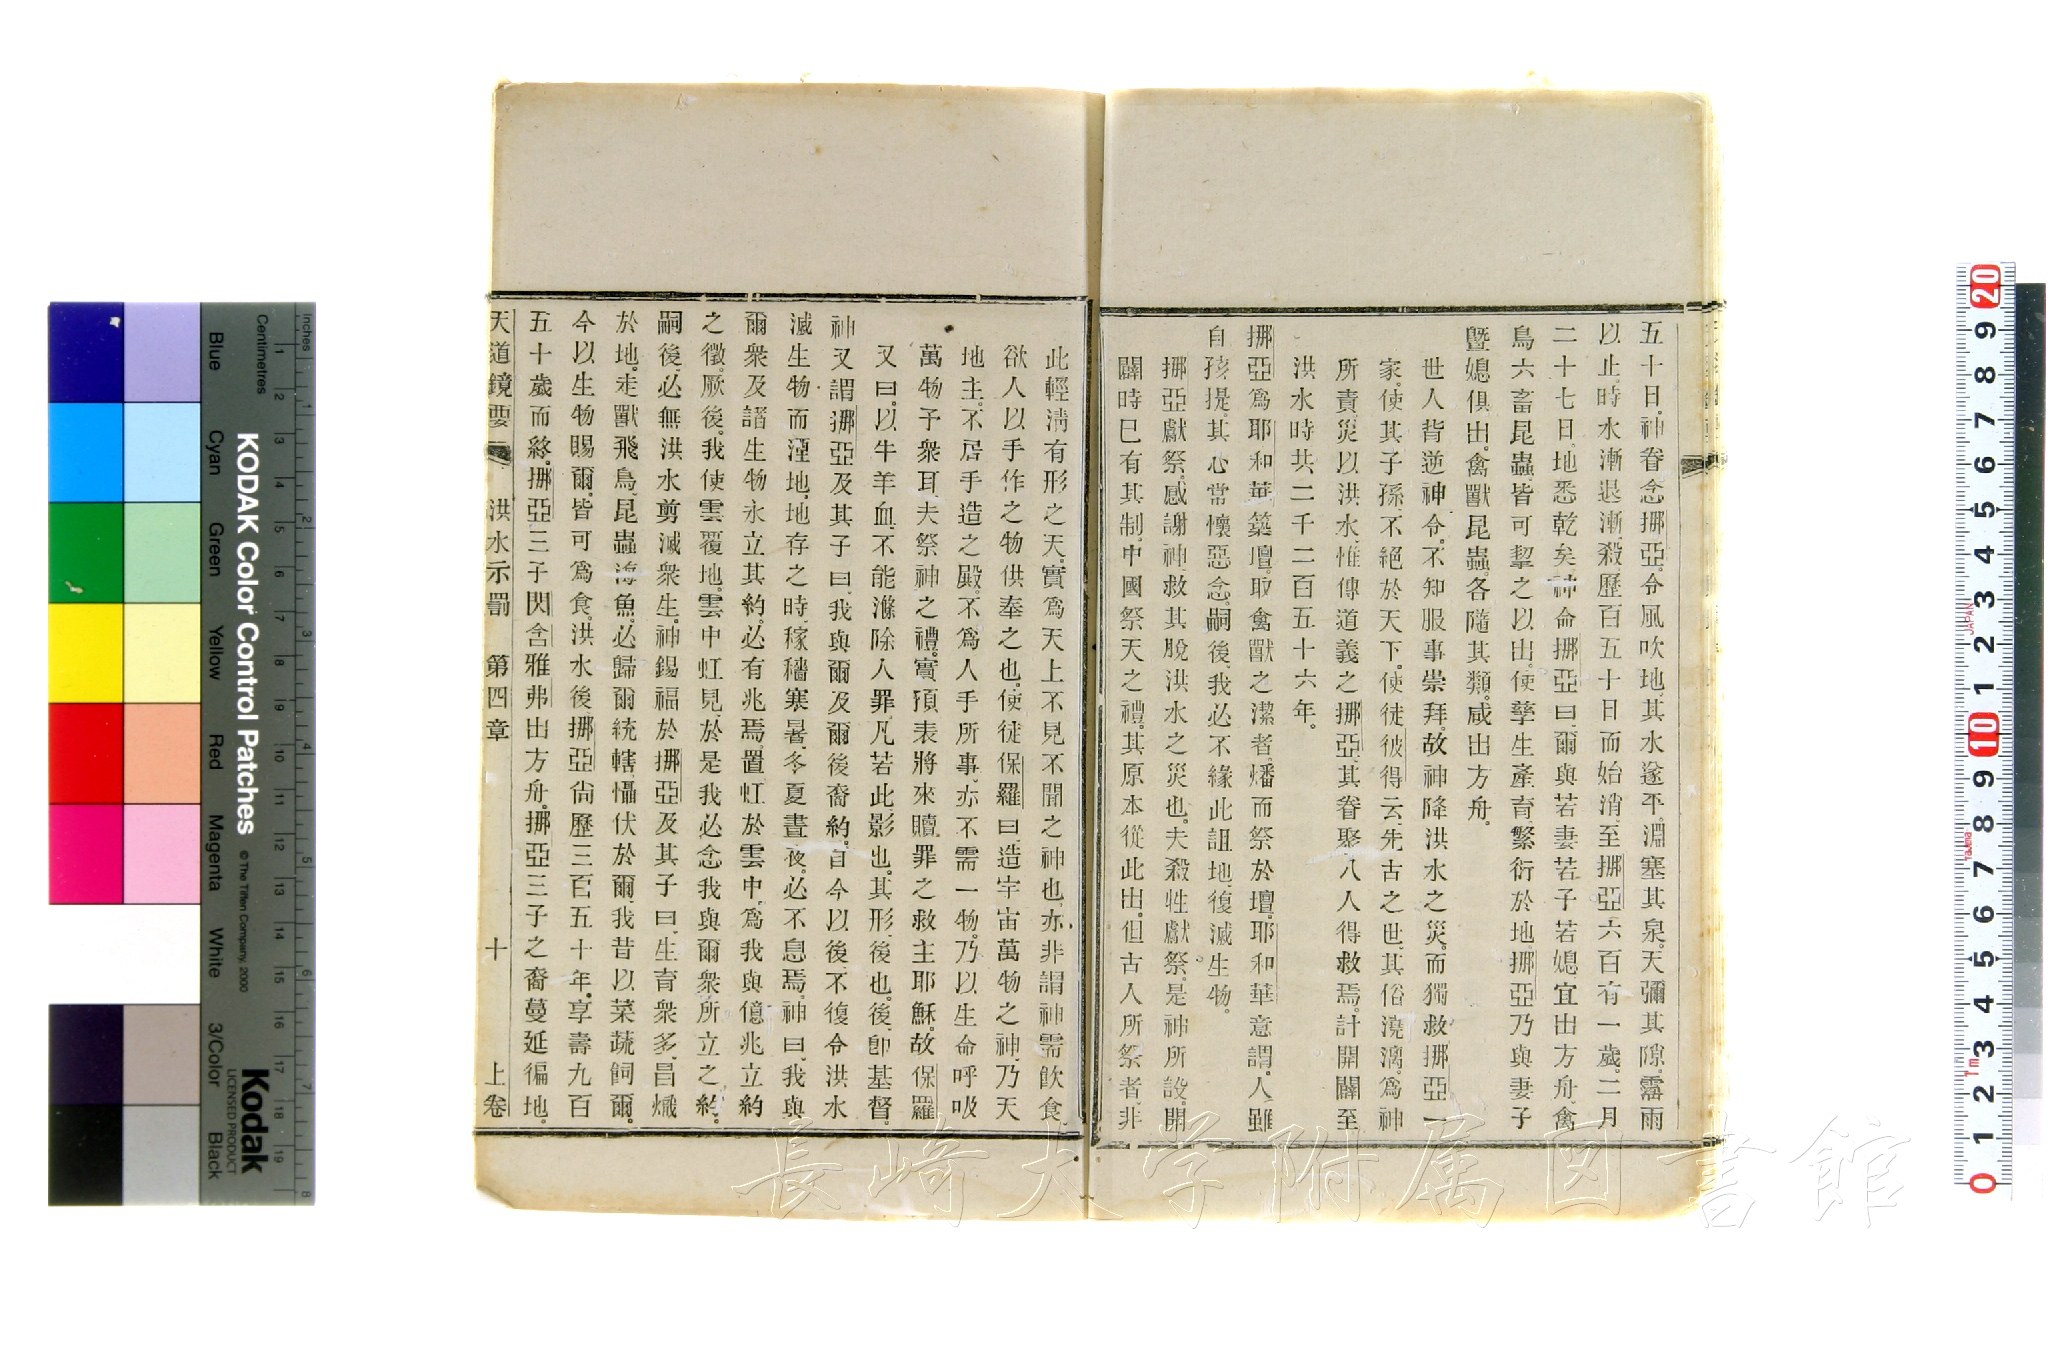 五十日。神眷念挪亞。令風吹地。其水遂平。淵塞其泉。天彌其隙。霪雨
以止。時水漸退漸殺。歷百五十日而始消。至挪亞六百有一歲。二月
二十七日。地悉乾矣。神命挪亞曰。爾與若妻若子若媳宜出方舟。禽
鳥六畜昆蟲。皆可挈之以出。使孳生產育繁衍於地。挪亞乃與妻子
曁媳俱出。禽獸昆蟲。各隨其類。咸出方舟。
世人背逆神令。不知服事崇拜。故神降洪水之災。而獨救挪亞一
家。使其子孫。不絕於天下。使徒彼得云。先古之世。其俗澆漓。爲神
所責。災以洪水。惟傳道義之挪亞。其眷聚八人得救焉。計開闢至
洪水時共二千二百五十六年。
挪亞爲耶和華築壇。取禽獸之潔者。燔而祭於壇。耶和華意謂。人雖
自孩提。其心常懷惡念。嗣後我必不緣此詛地。復滅生物。
挪亞獻祭。感謝神救其脫洪水之災也。夫殺牲獻祭。是神所設。開
闢時已有其制。中國祭天之禮。其原本從此出。但古人所祭者。非
此輕淸有形之天。實爲天上不見不聞之神也。亦非謂神需飮食。
欲人以手作之物供奉之也。使徒保羅曰。造宇宙萬物之神。乃天
地主。不居手造之殿。不爲人手所事。亦不需一物。乃以生命呼吸
萬物予衆耳。夫祭神之禮。實預表將來贖罪之救主耶穌。故保羅
又曰。以牛羊血。不能滌除人罪。凡若此影也。其形後也。後卽基督。
神又謂挪亞及其子曰。我與爾及爾後裔約。自今以後。不復令洪水
滅生物而湮地。地存之時。稼穡寒暑。冬夏晝夜。必不息焉。神曰。我與
爾衆及諸生物永立其約。必有兆焉。置虹於雲中。爲我與億兆立約
之徵。厥後。我使雲覆地。雲中虹見。於是我必念我與爾衆所立之約。
嗣後必無洪水剪滅衆生。神錫福於挪亞及其子曰。生育衆多。昌熾
於地。走獸飛鳥昆蟲海魚。必歸爾統轄。懾伏於爾。我昔以菜蔬飼爾。
今以生物賜爾。皆可爲食。洪水後。挪亞尙歷三百五十年。享壽九百
五十歲而終。挪亞三子閃含雅弗出方舟。挪亞三子之裔蔓延徧地。
天道鏡要 洪水示罰 第四章 十 上卷
長崎大学附属図書館
KODAK Color Control Patches
© The Tiffen Company, 2000
Kodak
LICENSED PRODUCT
Inches
Centimetres
Blue
Cyan
Green
Yellow
Red
Magenta
White
3/Color
Black
JAPAN